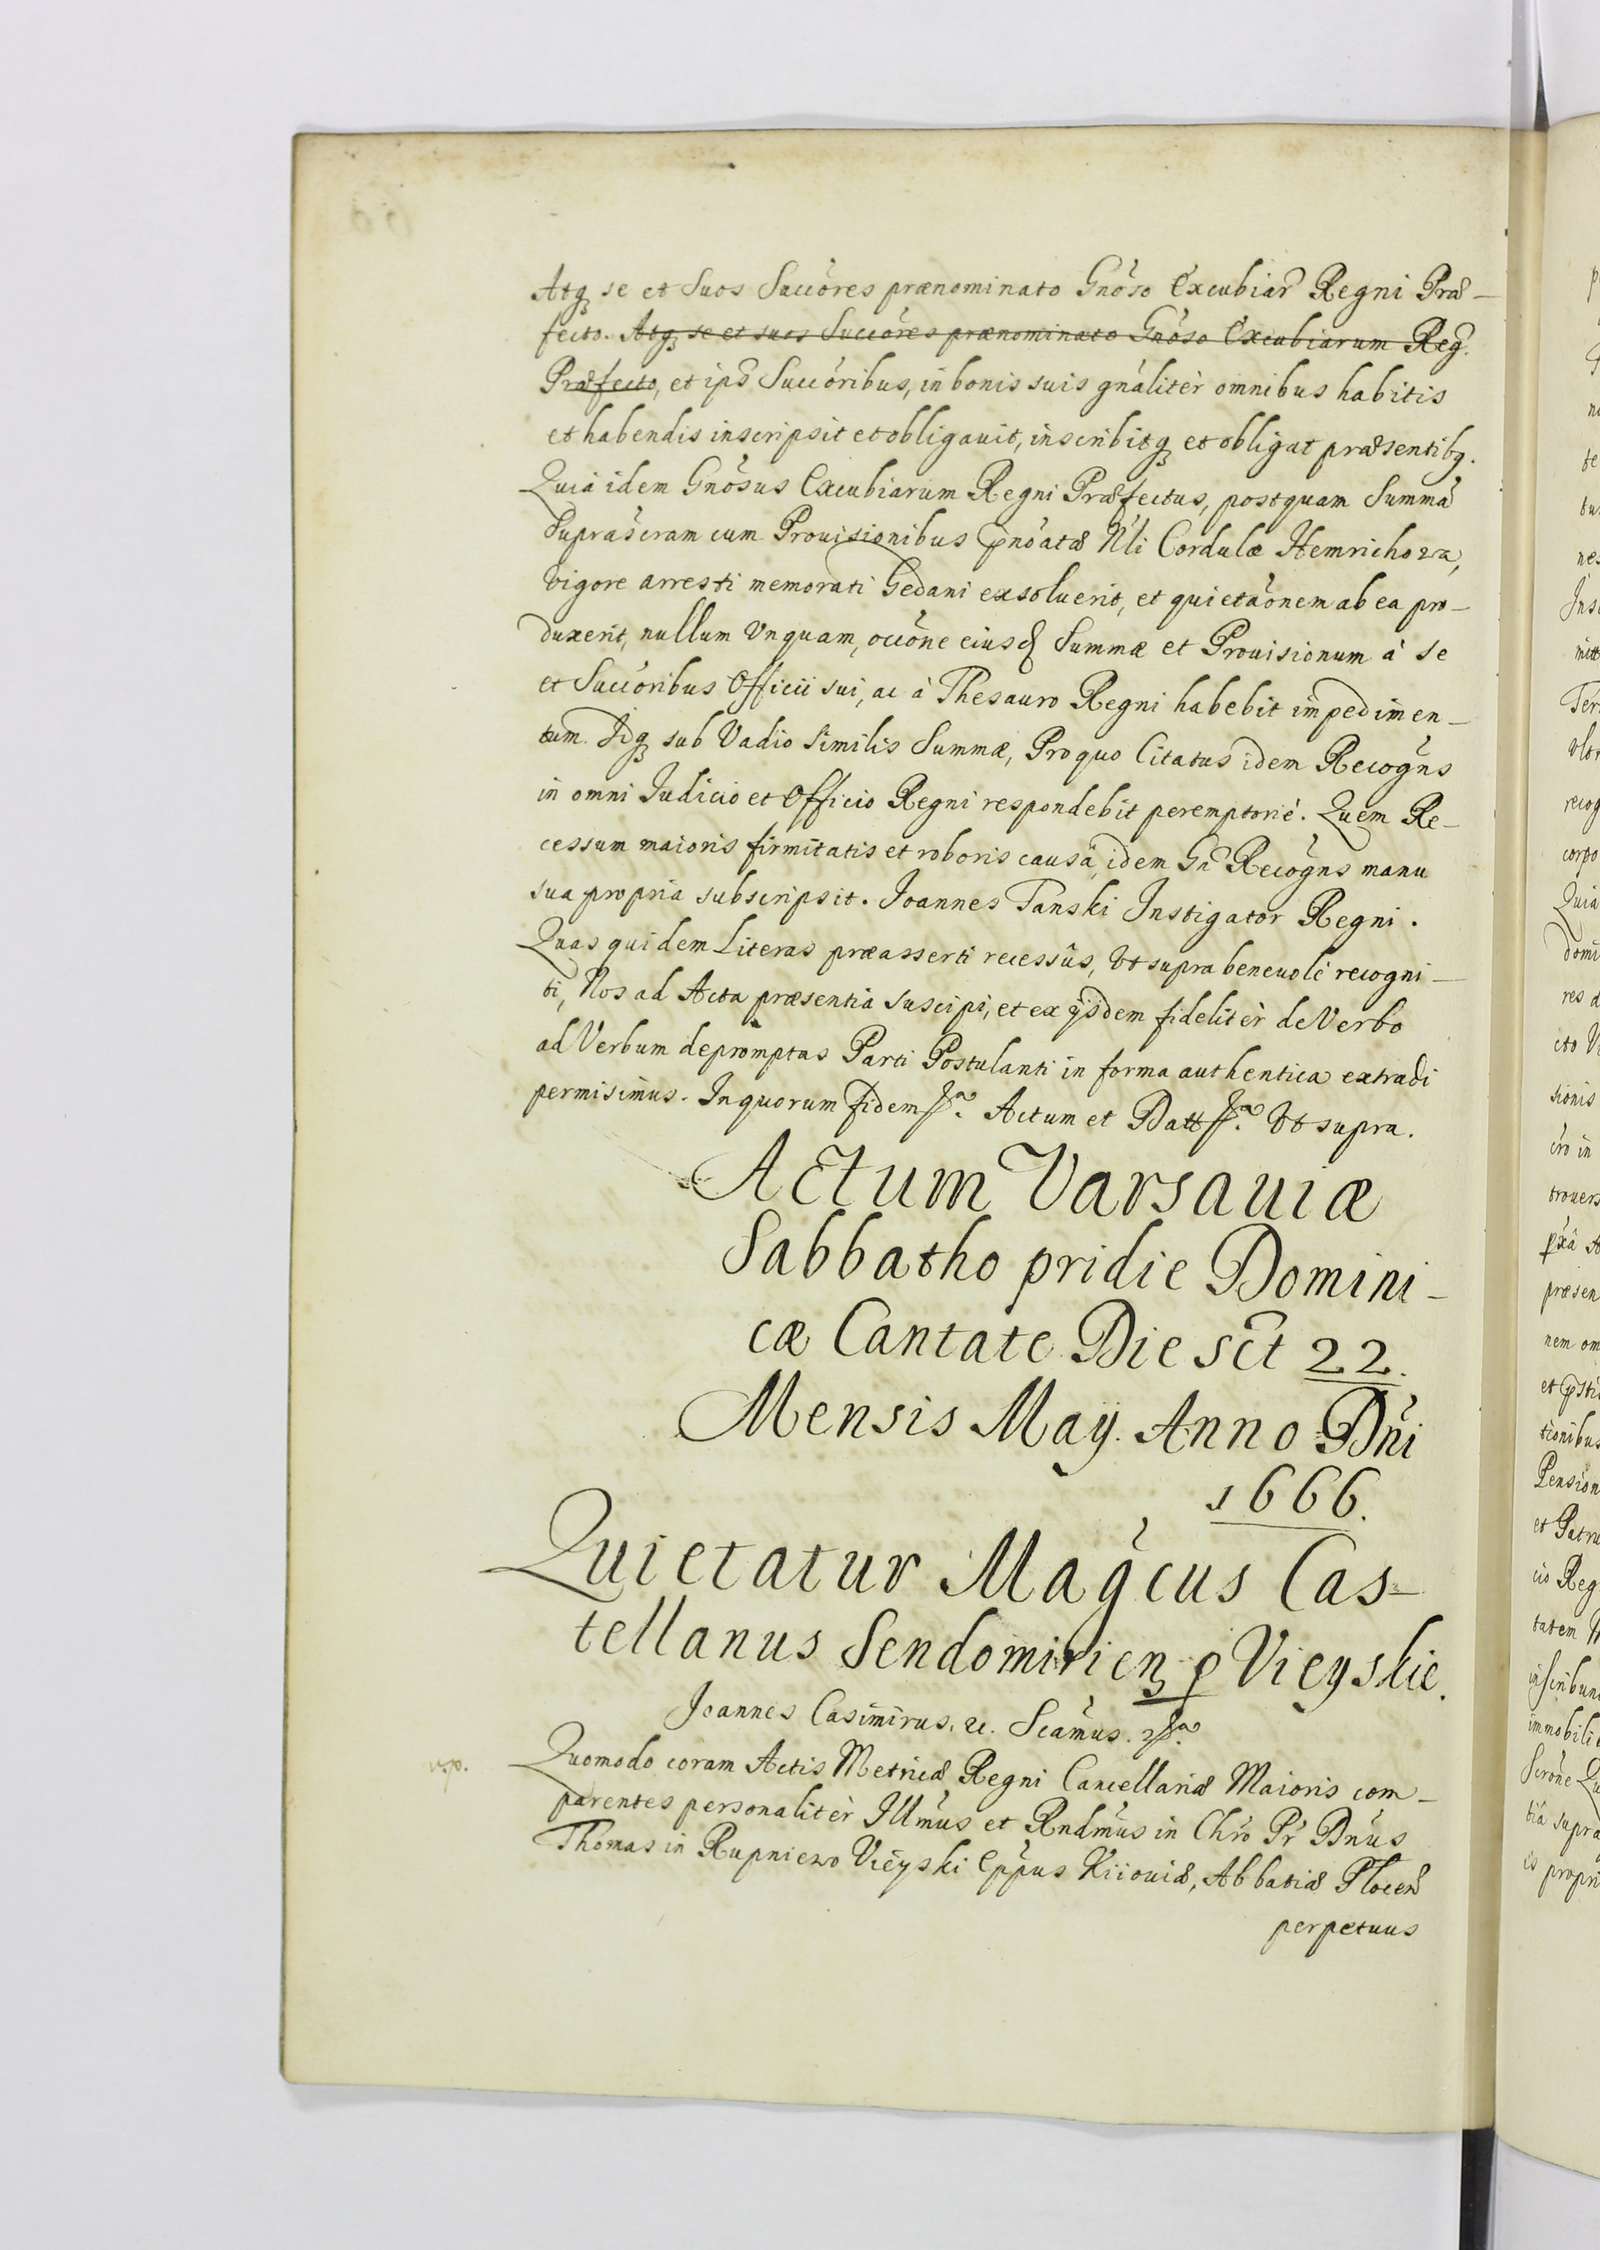 Atq se et Suos Succores prænominato Gnoso Excubiar Regni Præ-
fecto. Atq se et suos Succores prænominato Gnoso Excubiarum Reg.
Præfecto, et ips Succoribus, in bonis suis gnaliter omnibus habitis
et habendis inscripsit et obligauit, inscribitq et obligat præsentibq.
Quia idem Gnosus Excubiarum Regni Præfectus, postquam Summa
Suprascram cum Prouisionibus pnoatæ Nli Cordulæ Hemrichowa,
vigore arresti memorati Gedani exsoluerit, et quietaonem ab ea pro-
duxerit, nullum Vnquam, occone eiusd Summæ et Prouisionum à se
et Succoribus Officii sui, ac à Thesauro Regni habebit impedimen-
tum. Idq sub Vadio similis Summæ, Pro quo Citatus idem Recogns
in omni Iudicio et Officio Regni respondebit peremptoriè. Quem Re-
cessum maioris firmitatis et roboris causâ, idem Gn Recogns manu
sua propria subscripsit. Joannes Tanski Instigator Regni.
Quas quidem Literas præasserti recessûs, Vt supra beneuolè recogni-
ti, Nos ad Acta præsentia suscipi, et ex ijsdem fidelitèr de Verbo
ad Verbum depromptas Parti Postulanti in forma authentica extradi
permisimus. In quorum fidem Actum et Datt Vt supra.
Actum Varsauiæ
Sabbatho pridie Domini-
cæ Cantate Die sct 22.
Mensis Maÿ. Anno Dni
1666.
Quietatur Magcus Cas-
tellanus Sendomirien p Vieyskie.
Joannes Casimirus. &. Scamus.
Quomodo coram Actis Metricæ Regni Cancellariæ Maioris com-
parentes personalitèr Illmus et Rndmus in Chro Pr Dnus
Thomas in Rupniewo Vieyski Eppus Kiiouiæ, Abbatiæ Plocen
perpetuus